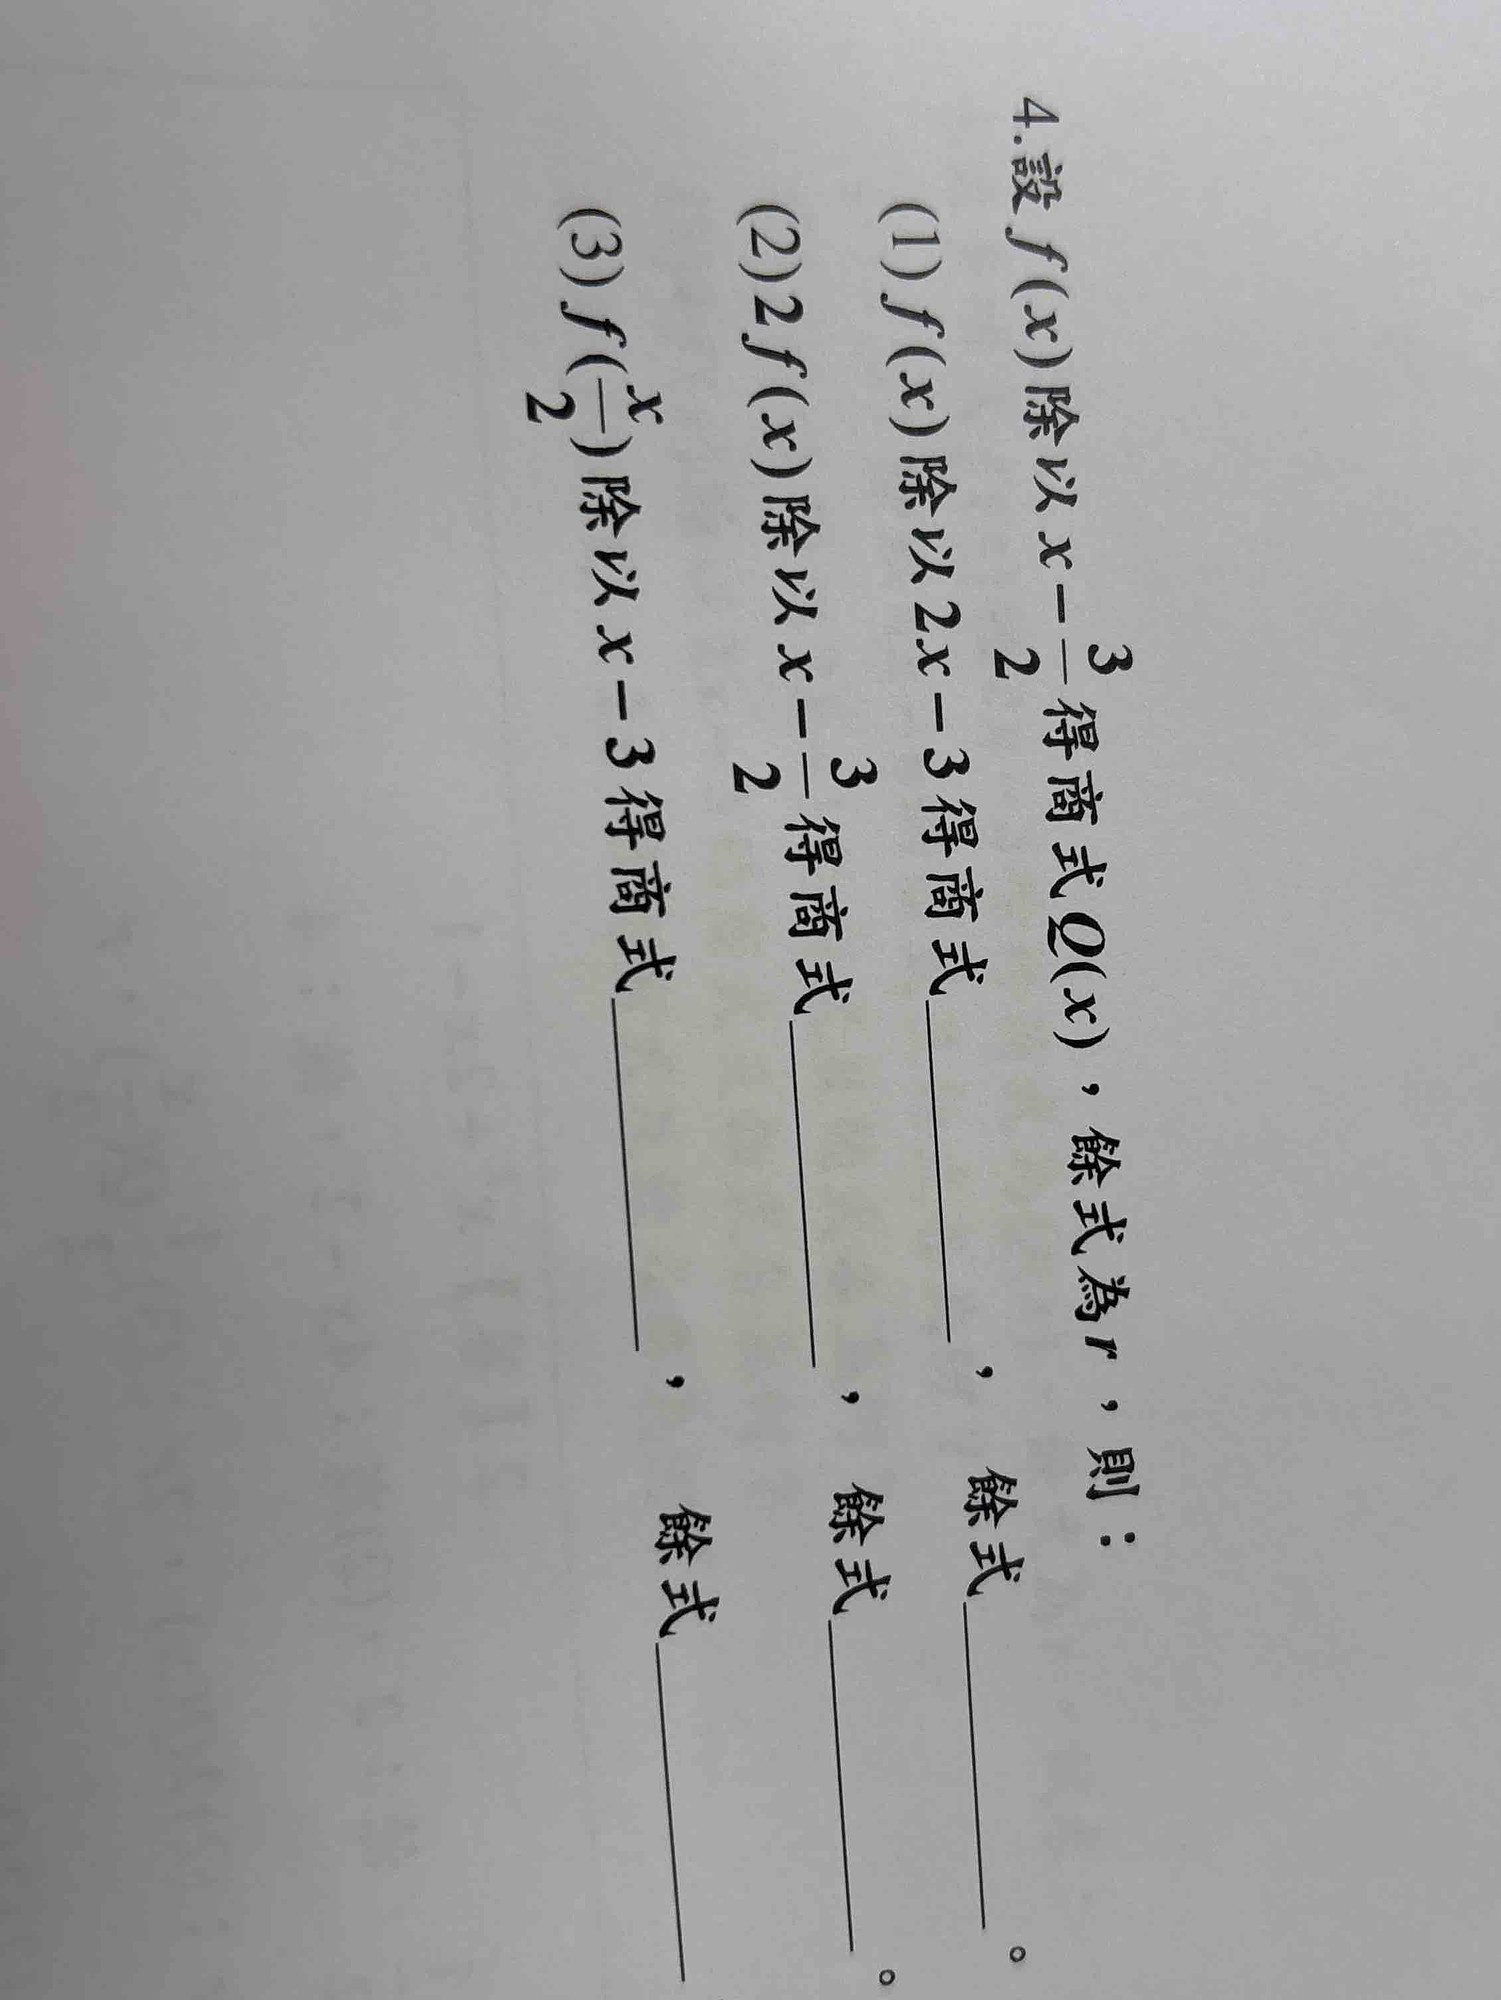 4.設 f(x) 除以 x－3/2 得商式 Q(x)，餘式為 r，則：
(1) f(x) 除以 2x－3 得商式________，餘式________。
(2) 2f(x) 除以 x－3/2 得商式________，餘式________。
(3) f(x/2) 除以 x－3 得商式________，餘式________